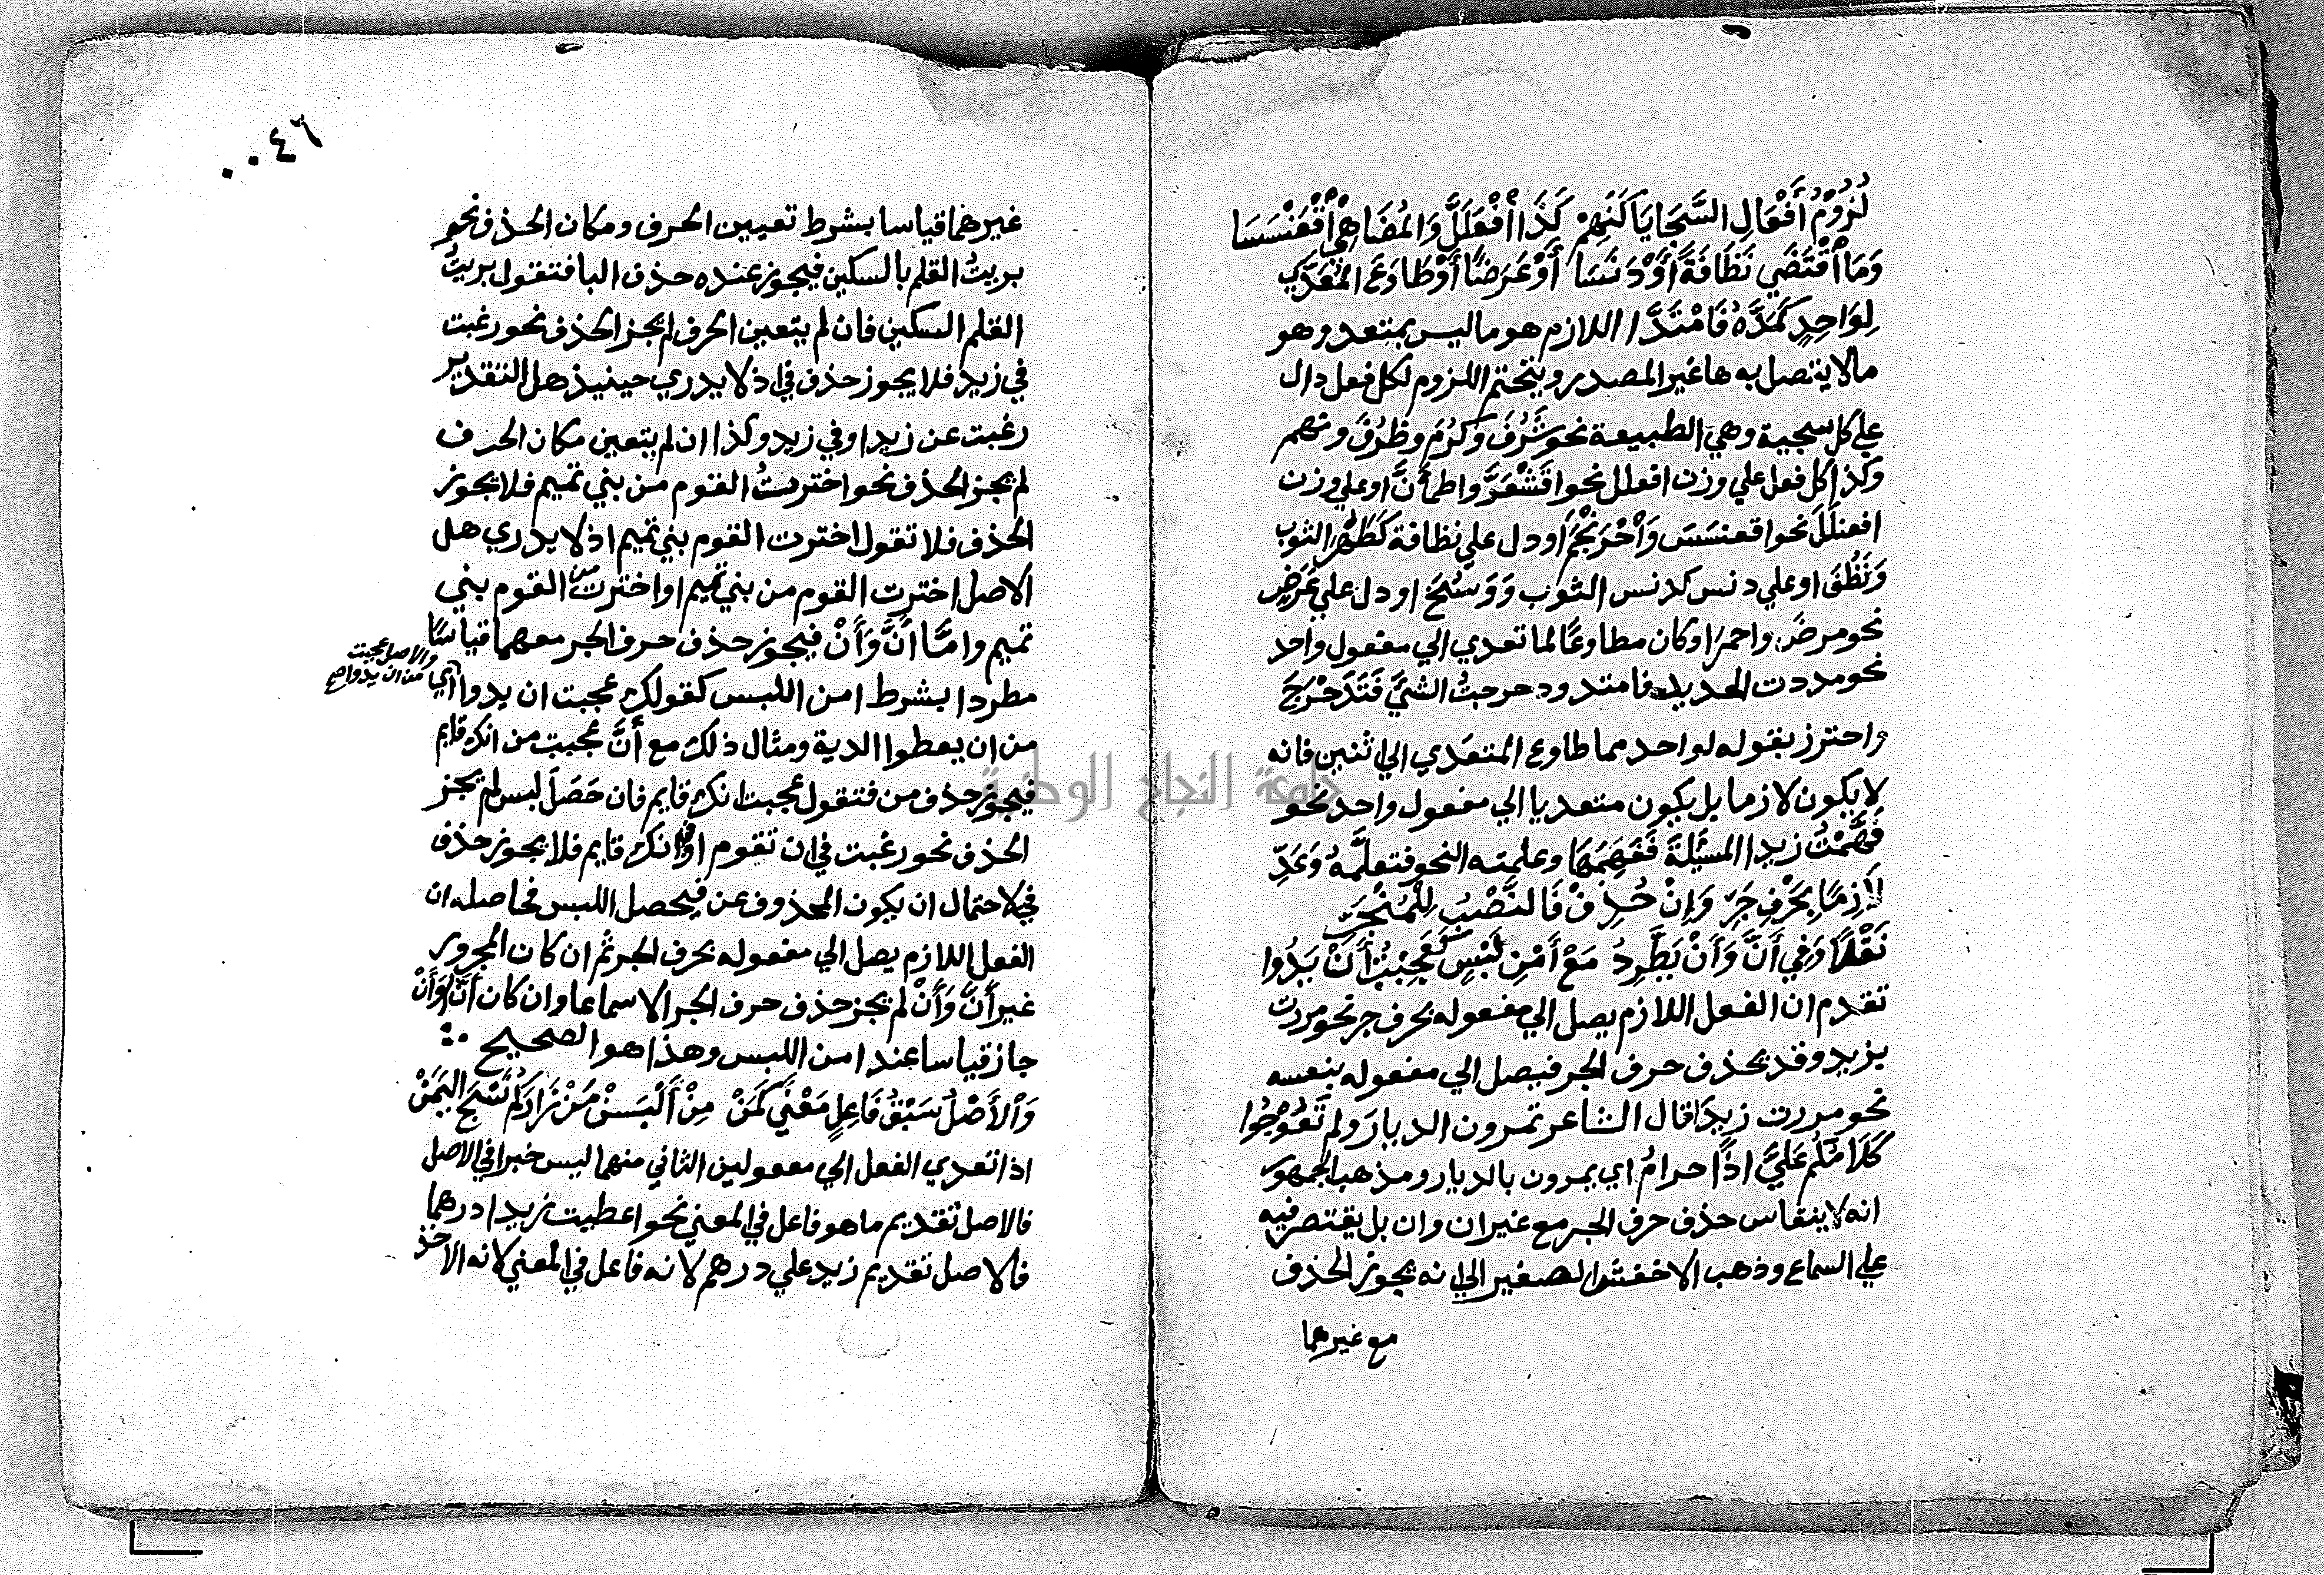 لُزُومُ أَفْعَالِ السَّجَايَا كَنَهِمْ كَذَا أفْعَلَلَّ وَالمُضَاهِي أقْعَنْسَسَا
وَمَا أقْتَضَي نَظَافَةً أَوْ دَنَسَا أَوْ عَرَضًا أَوْ طَاوَعَ المُعَدَّي
لِوَاحِدٍ كَمَدَّهُ فَامْتَدَّا اللازم هو ما ليس بمتعد وهو
ما لا يتصل به ها غير المصدر ويتحتم اللزوم لكل فعل دال
علي كل سجية وهي الطبيعة نحو شَرُفَ وَكَرُمَ وظَرُفَ ونهم
وكذا كل فعل علي وزن افعلل نحو اقشَعَرَّ واطمأَنَّ او علي وزن
افعنلَلَ نحو اقعنسَسَ وَأحْرَنْجَمَ او دل علي نظافة كَطَهُرَ الثوب
وَنَظُفَ او علي دنس كدنس الثوب وَوَسُخَ او دل علي عَرَضٍ
نحو مرضَ واحمرَّ او كان مطاوعًا لما تعدي الي مفعول واحد
نحو مددت الحديد فامتد ودحرجتُ الشيَّ فَتَدَحْرَجَ
واحترز بقوله لواحد مما طاوع المتعَدي الي اثنين فانه
لا يكون لازما بل يكون متعديا الي مفعول واحد نحو
فَهَّمْتُ زيدا المسئلة فَفَهِمَهَا وعلمته النحو فتعلَّمَهُ وَعَدِّ
لاَزِمًا بِحَرْفِ جَرِّ وَإِنْ حُذِفْ فَالنَّصْبُ لِلْمُنْجَرِّ
نَقْلًا وَفِي أَنَّ وَأَنْ يَطَّرِدُ مَعْ أَمْنِ لَبْسٍ كَعَجِبْتُ أَنْ يَدُوا
تقدم ان الفعل اللازم يصل الي مفعوله بحرف جر نحو مررت
بزيد وقد يحذف حرف الجر فيصل الي مفعوله بنفسه
نحو مررت زيدًا قال الشاعر تمرون الديارَ ولم تَعُوْجُوا
كَلَامُكُم عَلَيَّ اذًا حرامُ اي يمرون بالديار ومذهب الجمهور
انه لا ينقاس حذف حرف الجر مع غير ان وان بل يقتصر فيه
علي السماع وذهب الاخفش الصغير الي انه يجوز الحذف
مع غيرهما
٠٠٤٦
غيرهما قياسا بشرط تعيين الحرف ومكان الحذف نحو
بريتُ القلم بالسكين فيجوز عنده حذف البا فتقول بريتُ
القلم السكين فان لم يتعين الحرف لم يجز الحذف نحو رغبت
في زيد فلا يجوز حذف في اذ لا يدري حينيذ هل التقدير
رغبت عن زيد او في زيد وكذا ان لم يتعين مكان الحرف
لم يجز الحذف نحو اخترتُ القوم من بني تميم فلا يجوز
الحذف فلا تقول اخترت القوم بني تميم اذ لا يدري هل
الاصل اخترت القوم من بني تميم او اخترت من القوم بني
تميم وامَّا أَنَّ وَأَنْ فيجوز حذف حرف الجر معهما قياسًا
مطردا بشرط امن اللبس كقولك عجبت ان يدوا اي
والاصل عجبت
من ان يدوا صح
من ان يعطوا الدية ومثال ذلك مع أَنَّ عجبت من انك قايم
فيجوز حذف من فتقول عجبت انك قايم فان حَصَلَ لبس لم يجز
الحذف نحو رغبت في ان تقوم او في انك قايم فلا يجوز حذف
في لاحتمال ان يكون المحذوف عن فيحصل اللبس فحاصله ان
الفعل اللازم يصل الي مفعوله بحرف الجر ثم ان كان المجرور
غير أَنَّ وَأَنْ لم يجز حذف حرف الجر الا سماعا وان كان أَنَّ وَأَنْ
جاز قياسا عند امن اللبس وهذا هو الصحيح
وَالأَصْلُ سَبْقُ فَاعِلٍ مَعْنًي كَمَنْ مِنْ أَلْبِسَنْ مَنْ زَارَكُم نَسْجَ اليَمَنْ
اذا تعدي الفعل الي مفعولين الثاني منهما ليس خبرا في الاصل
فالاصل تقديم ما هو فاعل في المعني نحو اعطيت زيدا درهما
فالاصل تقديم زيد علي درهم لانه فاعل في المعني لانه الاخذ
جامعة النجاح الوطنية